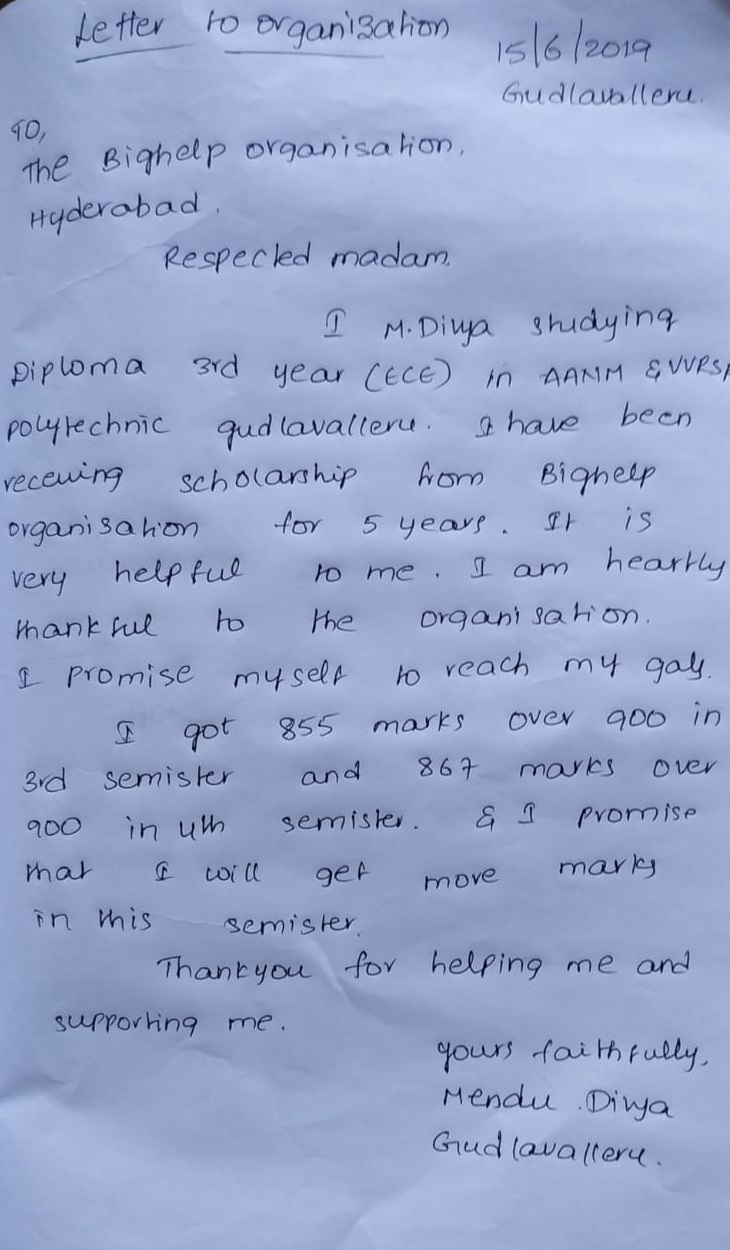 Letter to organisation
15/6/2019
Gudlavalleru.
To,
The Bighelp organisation,
Hyderabad.
Respected madam,
I M.Divya studying
Diploma 3rd year (ECE) in AANM & VVRSR
polytechnic gudlavalleru. I have been
receiving scholarship from Bighelp
organisation for 5 years. It is
very helpful to me. I am heartly
thankful to the organisation.
I promise myself to reach my gals.
I got 855 marks over 900 in
3rd semister and 867 marks over
900 in 4th semister. & I promise
that I will get more marks
in this semister.
Thankyou for helping me and
supporting me.
yours faithfully,
Mendu .Divya
Gudlavalleru.